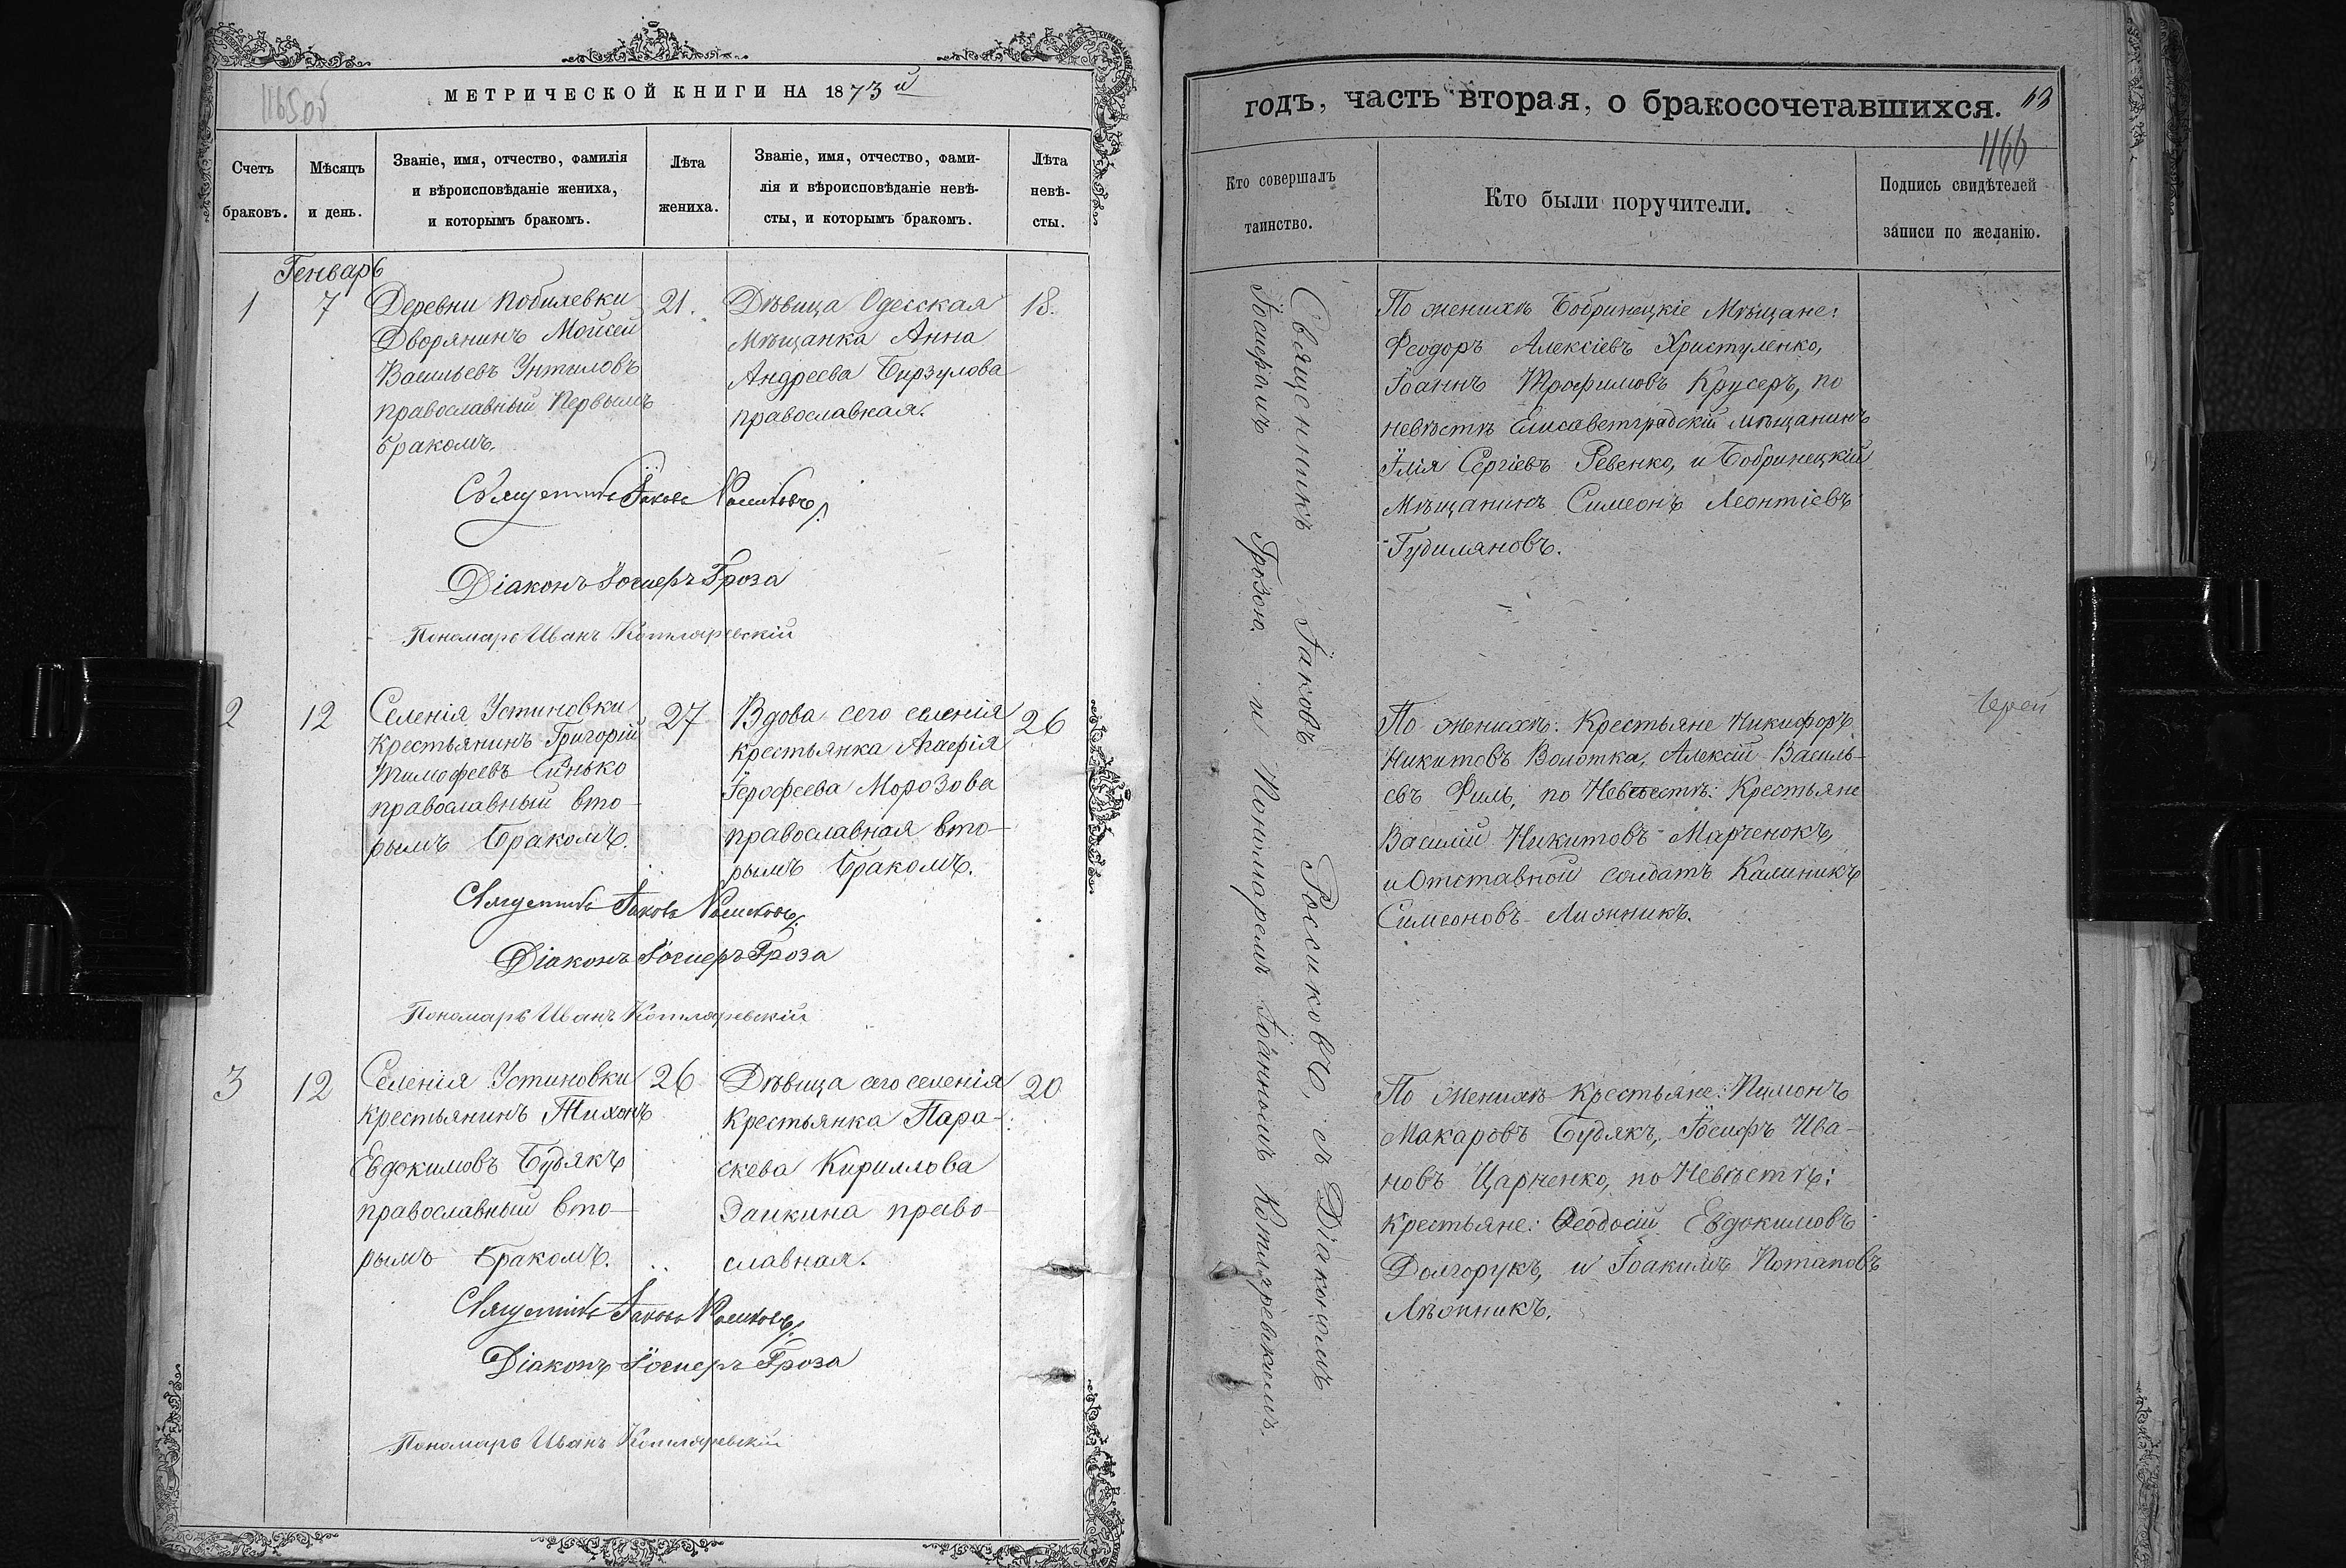 МЕТРИЧЕСКОЙ КНИГИ НА 1873й
Счетъ браковъ.
Мѣсяцъ и день.
Званіе, имя, отчество, фамилія
и вѣроисповѣданіе жениха,
и которымъ бракомъ.
Лѣта жениха.
Званіе, имя, отчество, фами-
лія и вѣроисповѣданіе невѣ-
сты, и которымъ бракомъ.
Лѣта невѣ-
сты.
Генварь
1
7
Деревни
Дворянинъ Мойсей
Васильевъ
православный Первымъ
бракомъ.
21.
Дѣвица Одесская
Мѣщанка Анна
Андреева Бирзулова
православная.
18.
Священникъ Іаковъ
Діаконъ Іосифъ Гроза
Пономарь Иванъ Котляревскій
2
12
Селенія Устиновки
Крестьянинъ Григорій
Тимофеевъ Синько
православный вто-
рымъ бракомъ.
27
Вдова сего селенія
крестьянка Агафія
Іерофеева Морозова
православная вто-
рымъ бракомъ.
26
Священникъ Іаковъ
Діаконъ Іосифъ Гроза
Пономарь Иванъ Котляревскій
3
12
Селенія Устиновки
крестьянинъ Тихонъ
Евдокимовъ Будякъ
православный вто-
рымъ бракомъ.
26
Дѣвица сего селенія
Крестьянка Пара-
скева Кириллова
Заикина право-
славная.
20
Священникъ Іаковъ
Діаконъ Іосифъ Гроза
Пономарь Иванъ Котляревскій
годъ, часть вторая, о бракосочетавшихся.
63
1166
Кто совершалъ
таинство.
Кто были поручители.
Подпись свидѣтелей
записи по желанію.
Священникъ Іаковъ Россиковъ, съ Діакономъ
Іосифомъ Грозою и Пономаремъ Іоанномъ Котляревскимъ.
По женихѣ Бобринецкіе Мѣщане:
Феодоръ Алексіевъ Христуленко,
Іоаннъ Трофимовъ Крусеръ, по
невѣстѣ Елисаветградскій мѣщанинъ
Илія Сергіевъ Ревенко, и Бобринецкій
Мѣщанинъ Симеонъ Леонтіевъ
Гудиляновъ.
По женихѣ: Крестьяне Никифоръ
Никитовъ Волотка, Алексій Василь-
евъ Филь, по Невѣстѣ: Крестьяне
Василій Никитовъ Марченокъ,
и Отставной солдатъ Калиникъ
Симеоновъ
По женихѣ крестьяне: Пимонъ
Макаровъ Будякъ, Іосифъ Ива-
новъ Царненко, по Невѣстѣ:
крестьяне: Ѳеодосій Евдокимовъ
Долгорукъ, и Іоакимъ Потаповъ